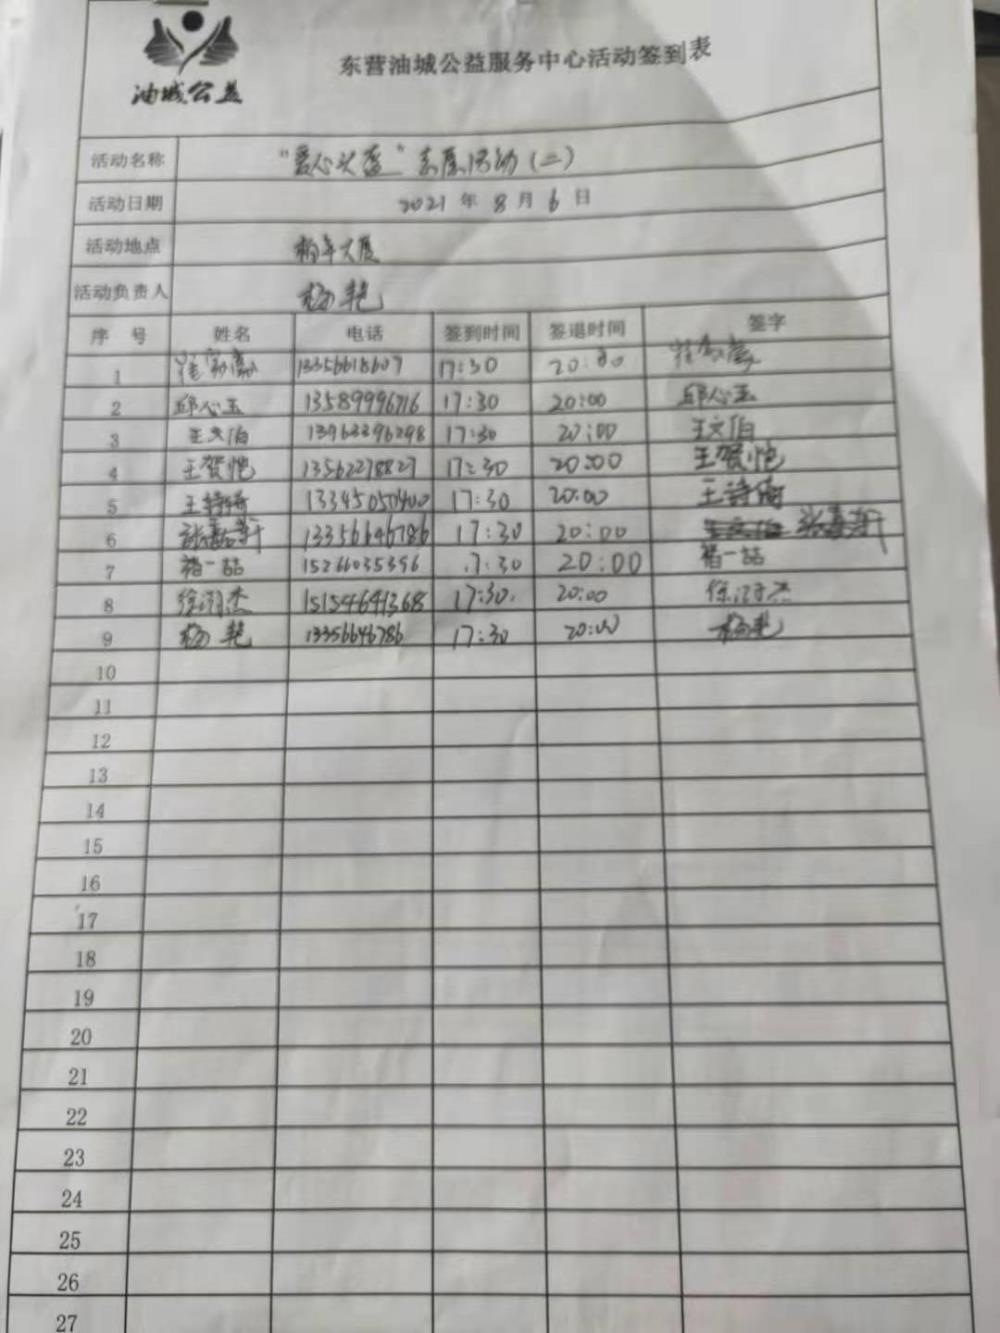 油城公益
东营油城公益服务中心活动签到表
活动名称 "爱心头盔" 活动(二)
活动日期 2021年8月6日
活动地点 大厦
活动负责人 杨艳
序号 姓名 电话 签到时间 签退时间 签字
1 13356618607 17:30 20:00
2 邱心玉 13589996716 17:30 20:00 邱心玉
3 王文伯 13963396298 17:30 20:00 王文伯
4 王贺恺 13562278827 17:30 20:00 王贺恺
5 王诗倚 13345050400 17:30 20:00 王诗倚
6 13356646786 17:30 20:00
7 一喆 15266035356 17:30 20:00 一喆
8 徐 杰 15154641368 17:30. 20:00 徐 杰
9 杨艳 13356646786 17:30 20:00 杨艳
10
11
12
13
14
15
16
17
18
19
20
21
22
23
24
25
26
27